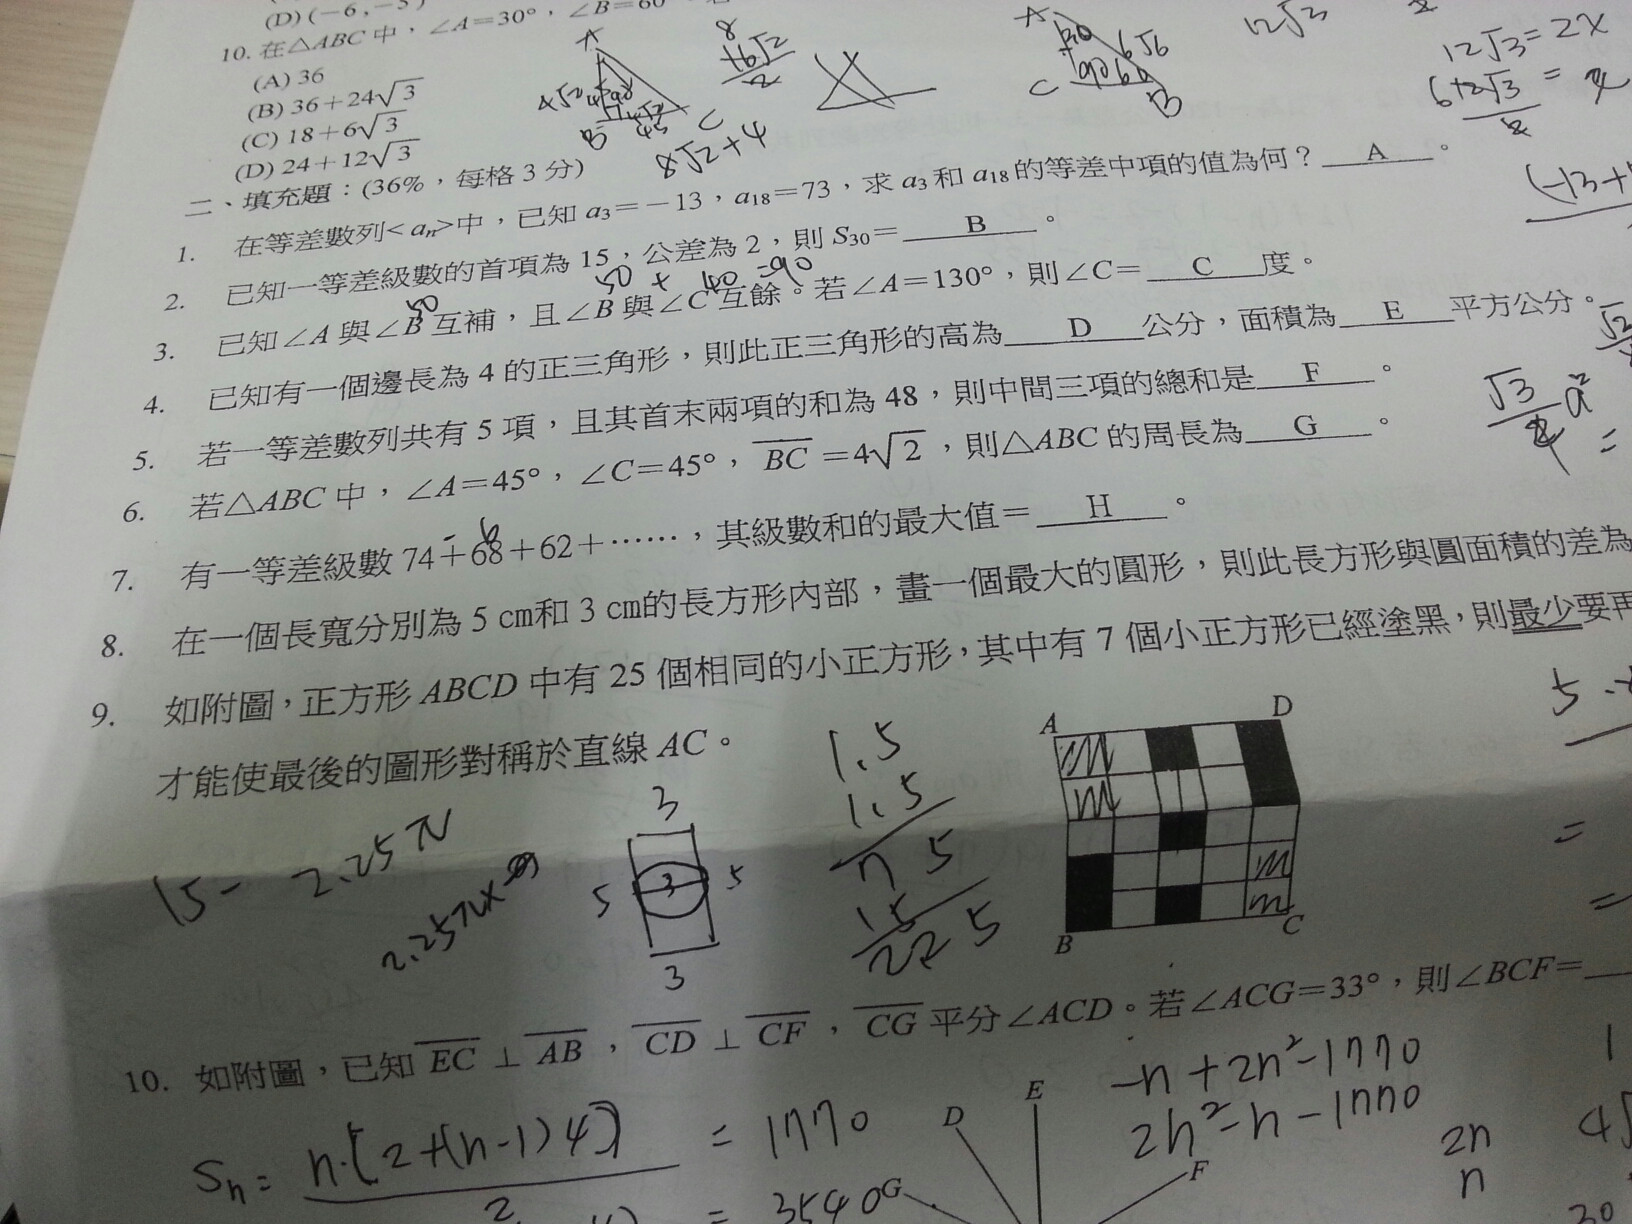 (D) (－6 , －5)
10. 在△ABC 中，∠A＝30°，∠B＝60°
(A) 36
(B) 36＋24√3
(C) 18＋6√3
(D) 24＋12√3
二、填充題：(36%，每格 3 分)
1. 在等差數列< aₙ>中，已知 a₃＝－13，a₁₈＝73，求 a₃ 和 a₁₈ 的等差中項的值為何？ A 。
2. 已知一等差級數的首項為 15，公差為 2，則 S₃₀＝ B 。
50 + 40 =90
3. 已知∠A 與∠B 互補，且∠B 與∠C 互餘。若∠A＝130°，則∠C＝ C 度。
50
4. 已知有一個邊長為 4 的正三角形，則此正三角形的高為 D 公分，面積為 E 平方公分。
5. 若一等差數列共有 5 項，且其首末兩項的和為 48，則中間三項的總和是 F 。
6. 若△ABC 中，∠A＝45°，∠C＝45°，BC＝4√2，則△ABC 的周長為 G 。
-6
7. 有一等差級數 74＋68＋62＋……，其級數和的最大值＝ H 。
8. 在一個長寬分別為 5 cm和 3 cm的長方形內部，畫一個最大的圓形，則此長方形與圓面積的差為
9. 如附圖，正方形 ABCD 中有 25 個相同的小正方形，其中有 7 個小正方形已經塗黑，則最少要再
才能使最後的圖形對稱於直線 AC。
A D
B C
3
5 3 5
3
1.5
1.5
75
15
225
15- 2.25π
10. 如附圖，已知 EC⊥AB，CD⊥CF，CG 平分∠ACD。若∠ACG＝33°，則∠BCF＝
Sn= n·[2+(n-1)4] = 1770
2 = 3540
-n+2n²-1770
2n²-n-1770
2n
n
D E F G
A
B C
8√2+4
A
C B
6√6
12√3
12√3=2x
6+2√3
√3 a²